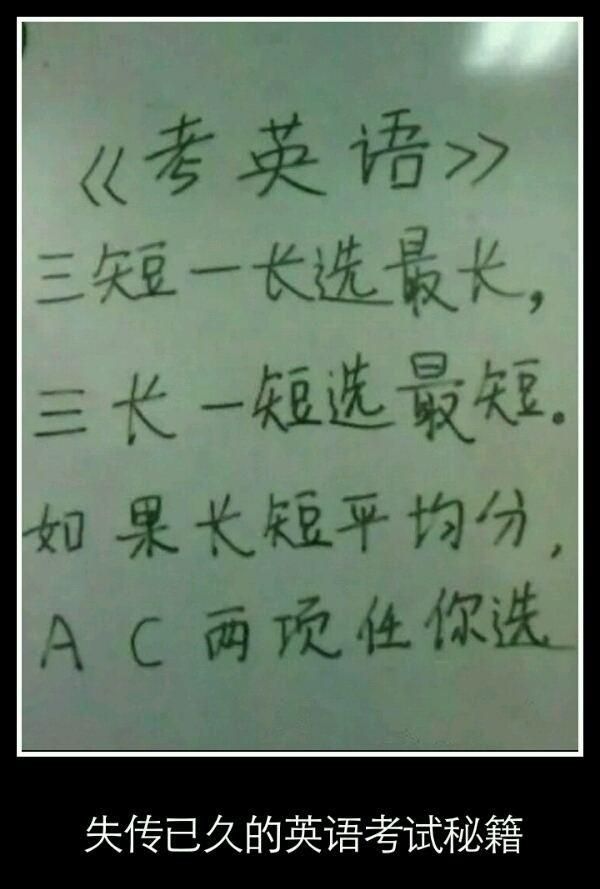 《考英语》
三短一长选最长，
三长一短选最短。
如果长短平均分，
A C 两项任你选
失传已久的英语考试秘籍